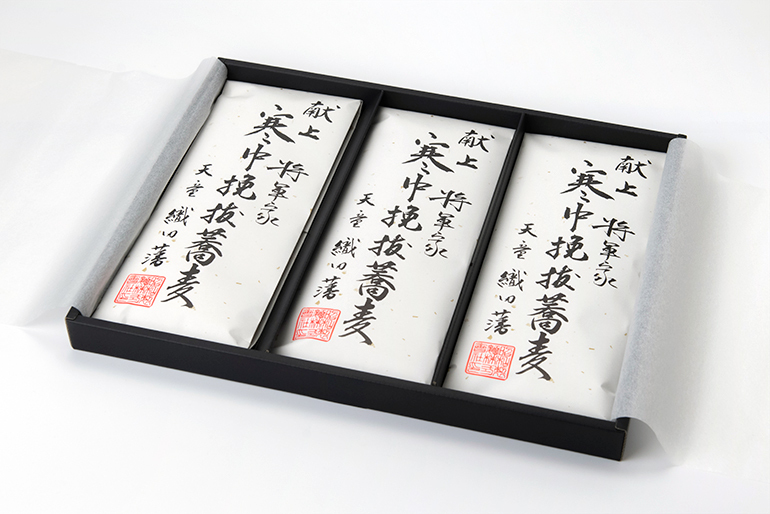 献上
将軍家
寒中挽抜蕎麦
天童 織田藩
献上
将軍家
寒中挽抜蕎麦
天童 織田藩
献上
将軍家
寒中挽抜蕎麦
天童 織田藩